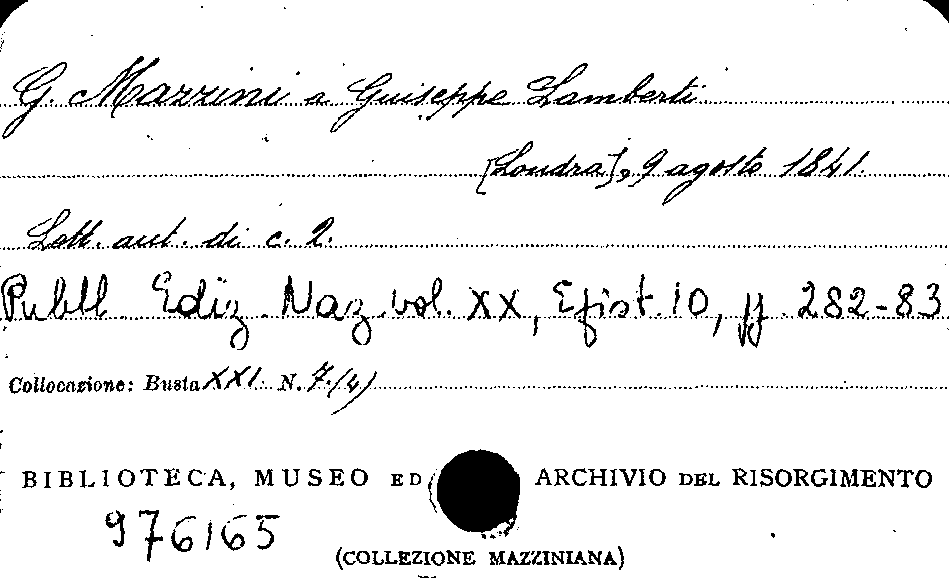 G. Mazzini a Guiseppe Lamberti.
[Londra], 9 agosto 1841.
Lett. aut. di c. 2.
Pubbl. Ediz. Naz. vol. XX, Epist. 10, pp. 282-83
Collocazione: Busta XXI. N. 7/(4)
BIBLIOTECA, MUSEO ED ARCHIVIO DEL RISORGIMENTO
976165
(COLLEZIONE MAZZINIANA)